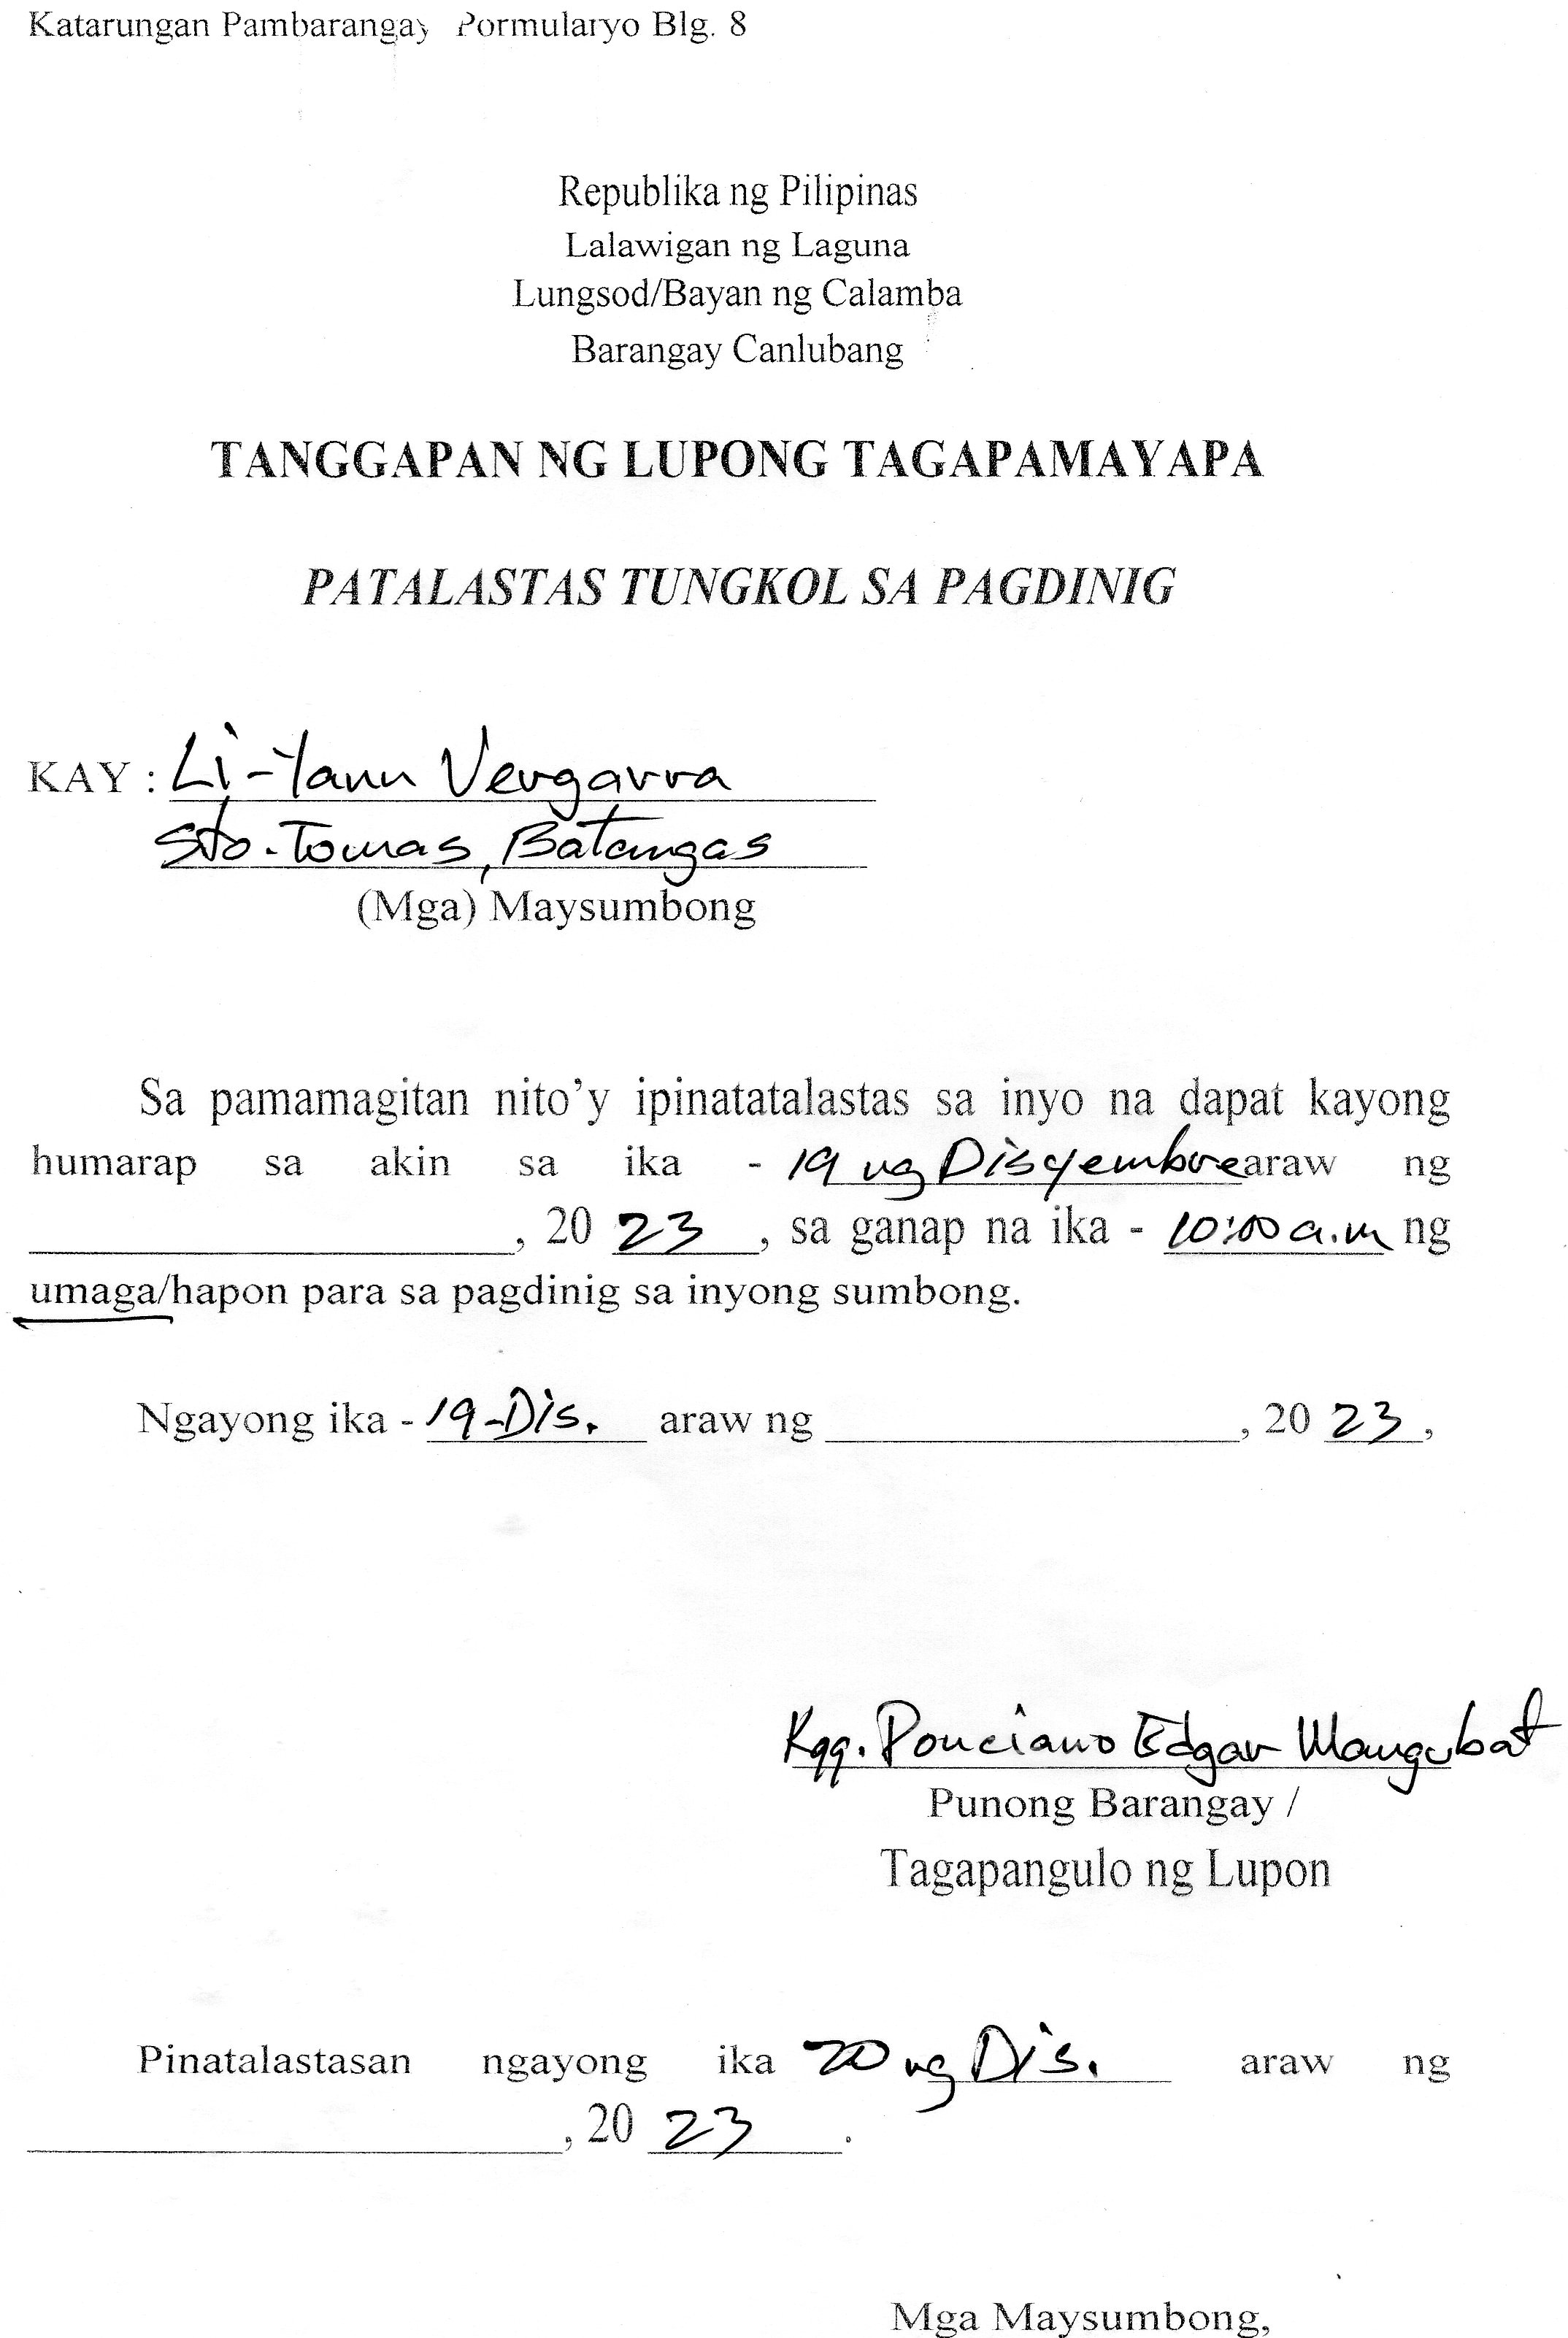 Katarungan Pambarangay Pormularyo Blg. 8
Republika ng Pilipinas
Lalawigan ng Laguna
Lungsod/Bayan ng Calamba
Barangay Canlubang
TANGGAPAN NG LUPONG TAGAPAMAYAPA
PATALASTAS TUNGKOL SA PAGDINIG
KAY : Li-Yann Vergarra
Sto. Tomas, Batangas
(Mga) Maysumbong
Sa pamamagitan nito'y ipinatatalastas sa inyo na dapat kayong
humarap sa akin sa ika - 19 ng Disyembre araw ng
, 20 23 , sa ganap na ika - 10:00 a.m ng
umaga/hapon para sa pagdinig sa inyong sumbong.
Ngayong ika - 19-Dis. araw ng , 20 23 ,
Kgg. Ponciano Edgar Mangubat
Punong Barangay /
Tagapangulo ng Lupon
Pinatalastasan ngayong ika 20 ng Dis. araw ng
, 20 23 .
Mga Maysumbong,